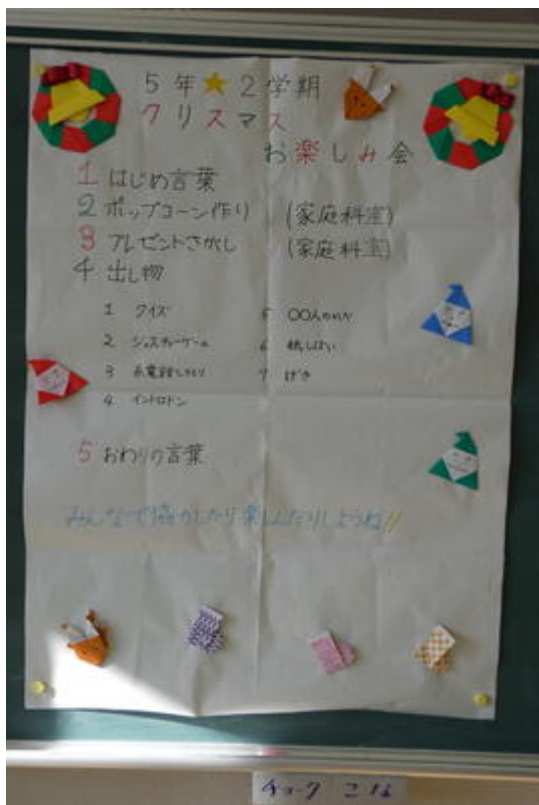 5年★2学期
クリスマス
お楽しみ会
1 はじめ言葉
2 ポップコーン作り (家庭科室)
3 プレゼントさがし (家庭科室)
4 出し物
1 クイズ
2 ジェスチャーゲーム
3 糸電話しりとり
4 イントロドン
5 〇〇人のれいだ
6 紙しばい
7 げき
5 おわりの言葉
みんなで協力したり楽しんだりしようね!!
チョーク こな